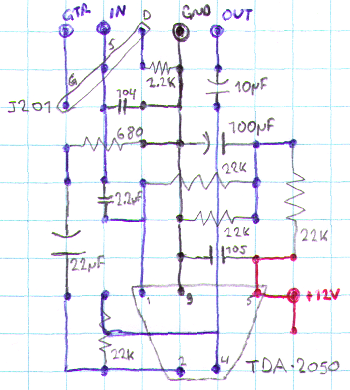 GTR IN D GND OUT
S
G
2.2K
J201
104
10µF
680
100µF
22K
2.2µF
22K
22K
22µF
105
+12V
1 3 5
22K
2 4
TDA-2050